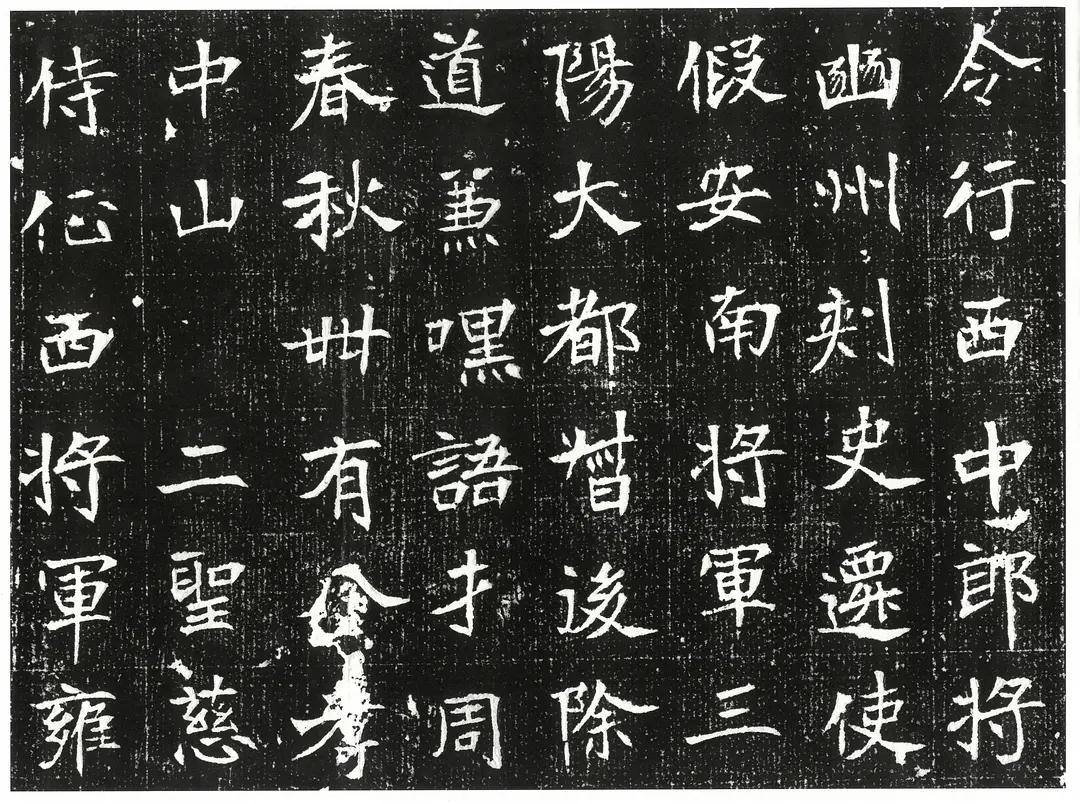 令行西中郎将
豳州刾史遷使
假安南将軍三
陽大都督後除
道兼嘿語才周
春秋卌有
中山 二聖慈
侍征西将軍雍